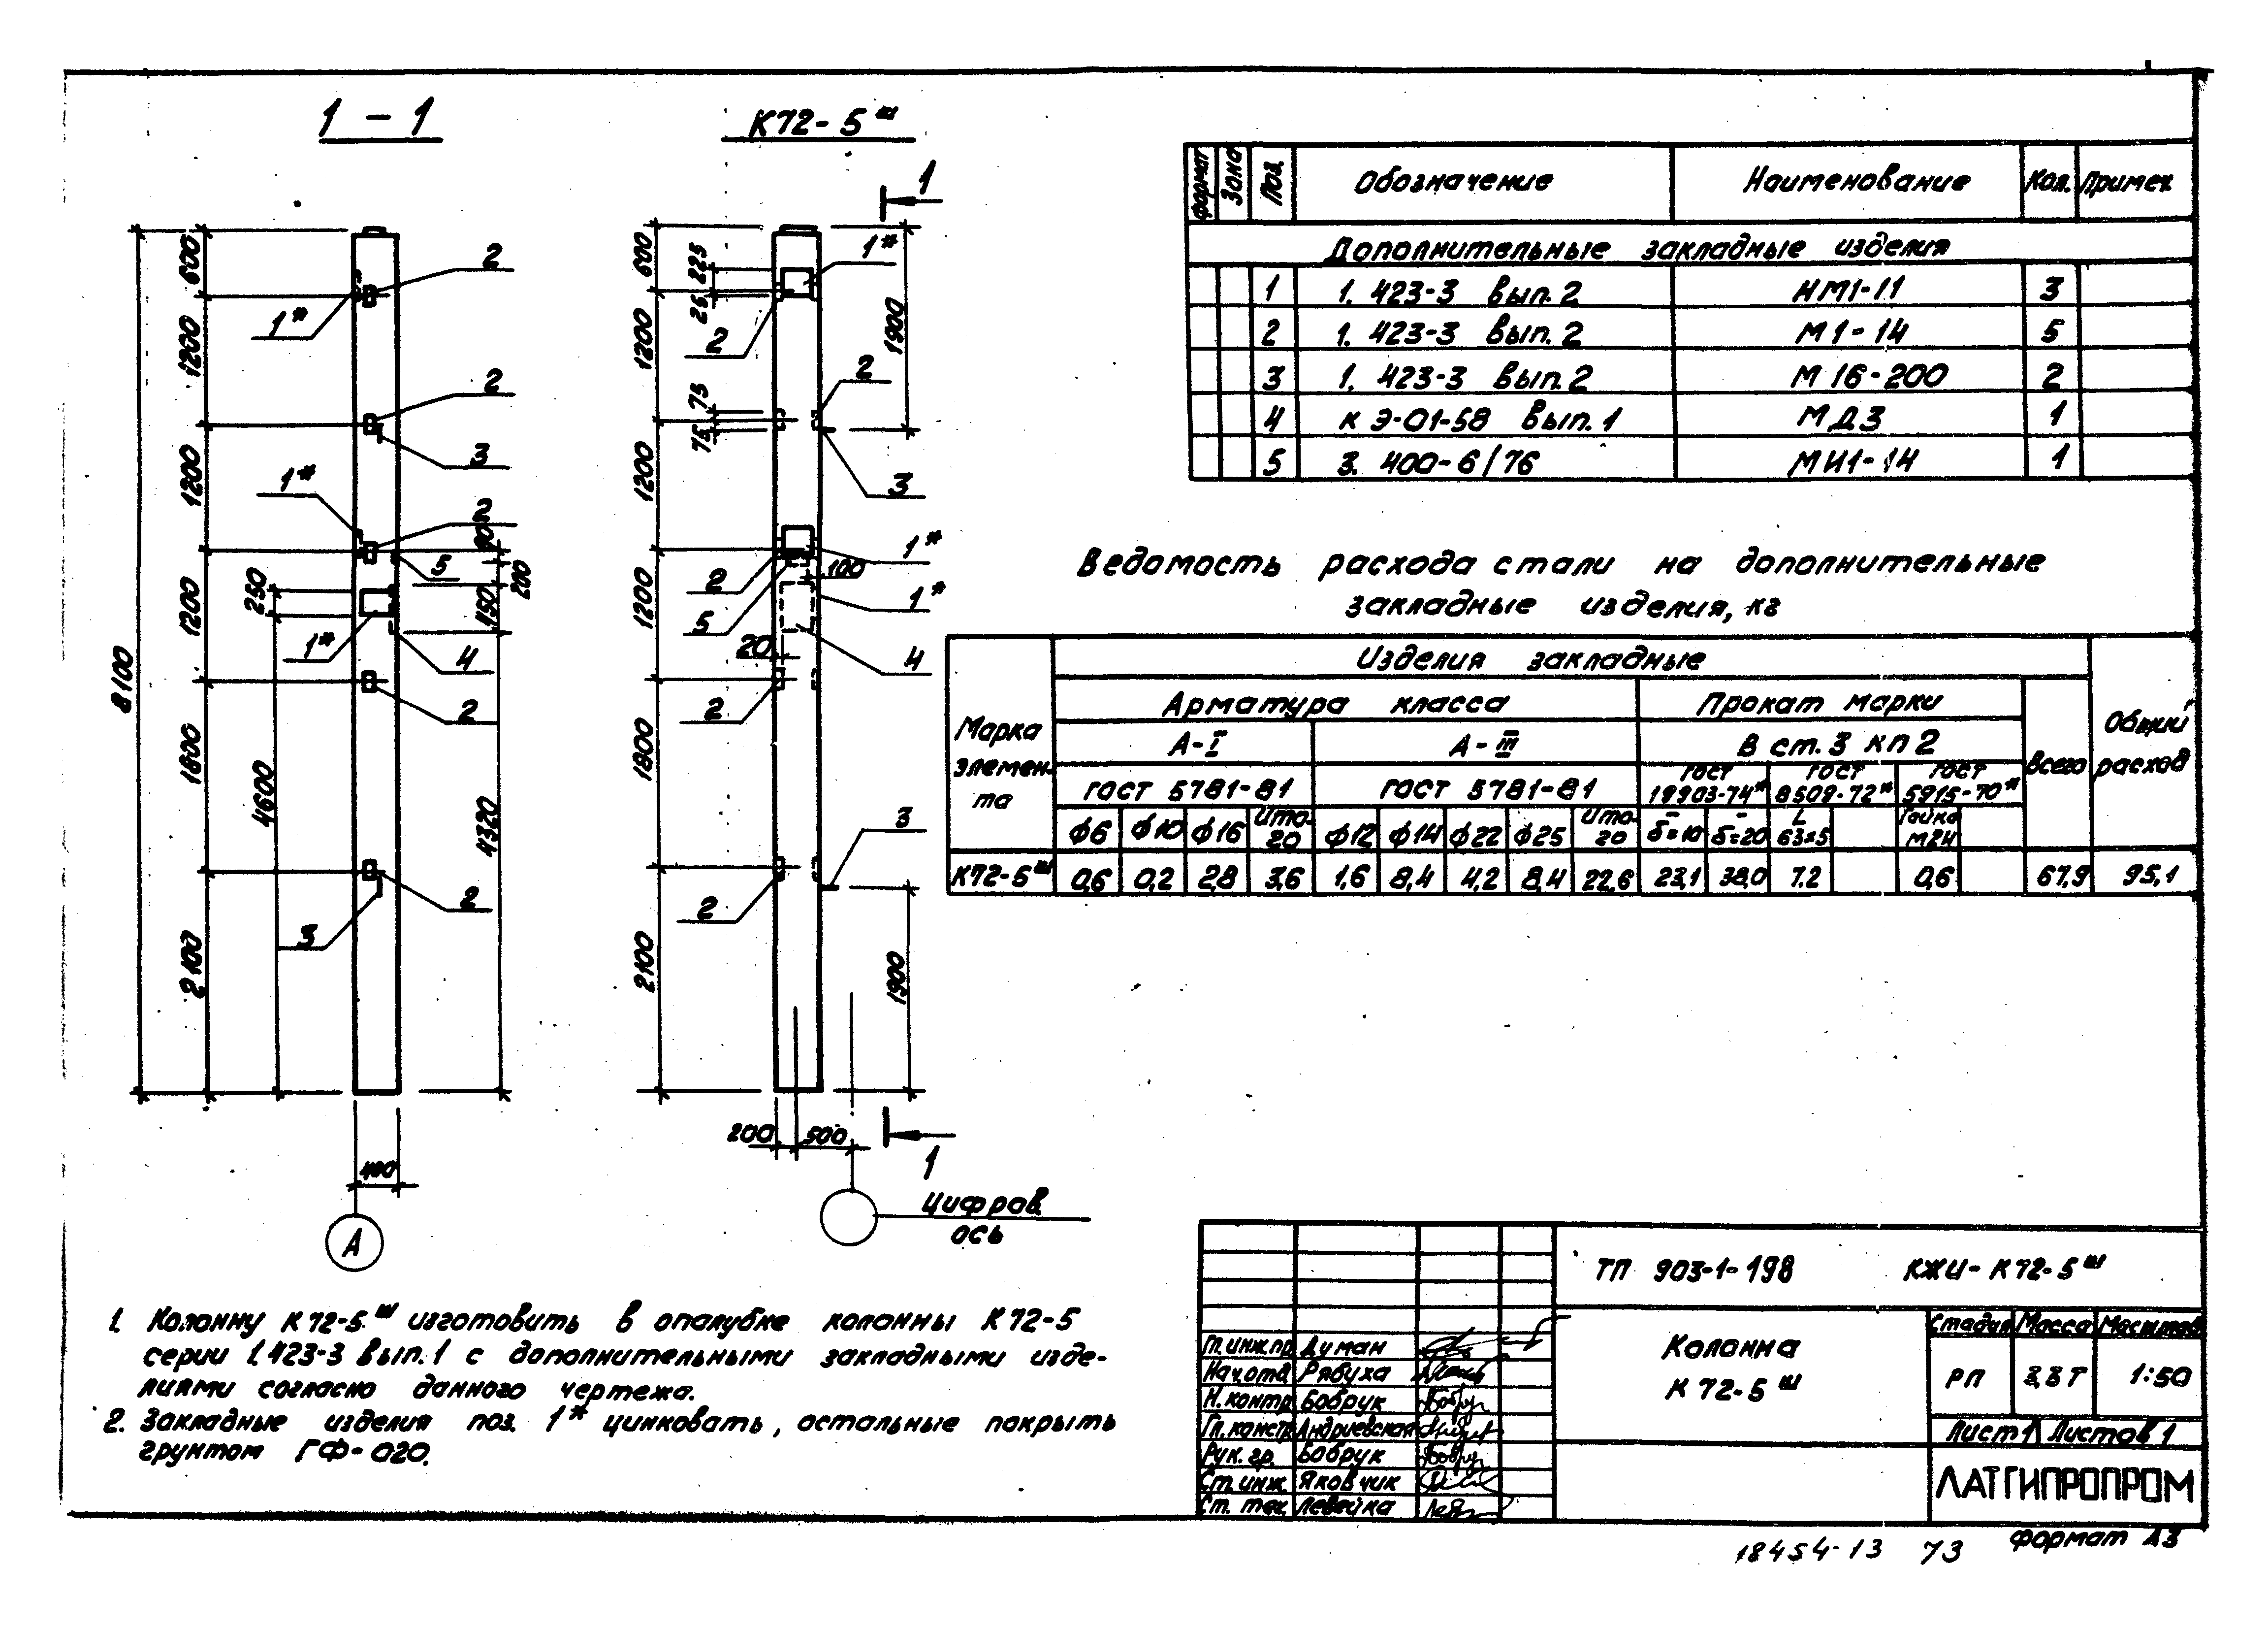 1 - 1
К72-5ш
1
600
1200
1200
1200
1800
2100
8100
250
4600
4320
200
450
400
А
2
1*
2
3
1*
2
5
1*
4
2
2
3
600
225
25
1200
75
75
1200
1200
1800
2100
1900
1900
100
20
200
500
1*
2
2
3
1*
2
5
1*
4
2
3
2
1
Цифров.
ось
Формат Зона Поз. Обозначение Наименование Кол. Примеч.
Дополнительные закладные изделия
1 1.423-3 вып.2 НМ1-11 3
2 1.423-3 вып.2 М1-14 5
3 1.423-3 вып.2 М16-200 2
4 к Э-01-58 вып.1 МД3 1
5 3.400-6/76 МИ1-14 1
Ведомость расхода стали на дополнительные
закладные изделия, кг
Марка элемен-та
Изделия закладные
Общий расход
Арматура класса
Прокат марки
Всего
А-I
А-III
В ст.3 кп2
ГОСТ 5781-81
ГОСТ 5781-81
ГОСТ 19903-74*
ГОСТ 8509-72*
ГОСТ 5915-70*
ф6 ф10 ф16 Итого ф12 ф14 ф22 ф25 Итого -δ=10 -δ=20 L 63x5 Гайка М24
К72-5ш 0,6 0,2 2,8 3,6 1,6 8,4 4,2 8,4 22,6 23,1 38,0 7.2 0,6 67,9 95,1
1. Колонну К72-5ш изготовить в опалубке колонны К72-5
серии 1.423-3 вып.1 с дополнительными закладными изде-
лиями согласно данного чертежа.
2. Закладные изделия поз. 1* цинковать, остальные покрыть
грунтом ГФ-020.
ТП 903-1-198 КЖИ-К72-5ш
Колонна
К72-5ш
Стадия Масса Масштаб
РП 1:50
Лист 1 Листов 1
Гл.инж.пр. Думан
Нач.отд. Рябуха
Н.контр. Бобрук
Гл.констр. Андриевская
Рук.гр. Бобрук
Ст.инж. Яковчик
Ст. тех. Левейка
ЛАТГИПРОПРОМ
18454-13 73
Формат А3